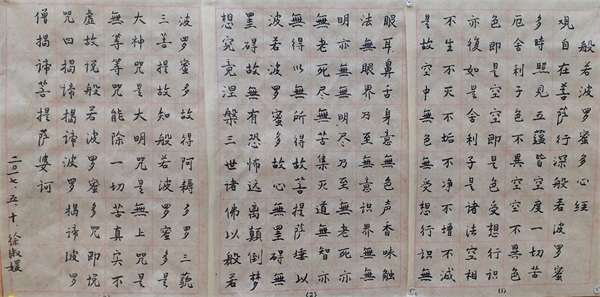 般若波罗蜜多心經
观自在菩薩行深般若波罗蜜
多時照見五蕴皆空度一切苦
厄舍利子色不異空空不異色
色即是空空即是色受想行識
亦復如是舍利子是諸法空相
不生不灭不垢不净不增不减
是故空中無色無受想行識無
(1)
眼耳鼻舌身意無色声香味触
法無眼界乃至無意識界無無
明亦無無明尽乃至無老死亦
無老死尽無苦集灭道無智亦
無得以無所得故菩提薩埵以
般若波罗蜜多故心無罣碍無
罣碍故無有恐怖远离颠倒梦
想究竟涅槃三世诸佛以般若
(2)
波罗蜜多故得阿耨多罗三藐
三菩提故知般若波罗蜜多是
大神咒是大明咒是無上咒是
無等等咒能除一切苦真实不
虚故说般若波罗蜜多咒即说
咒曰揭諦揭諦波罗揭諦波罗
僧揭諦菩提薩婆訶
二〇一七.五.十 徐淑媛